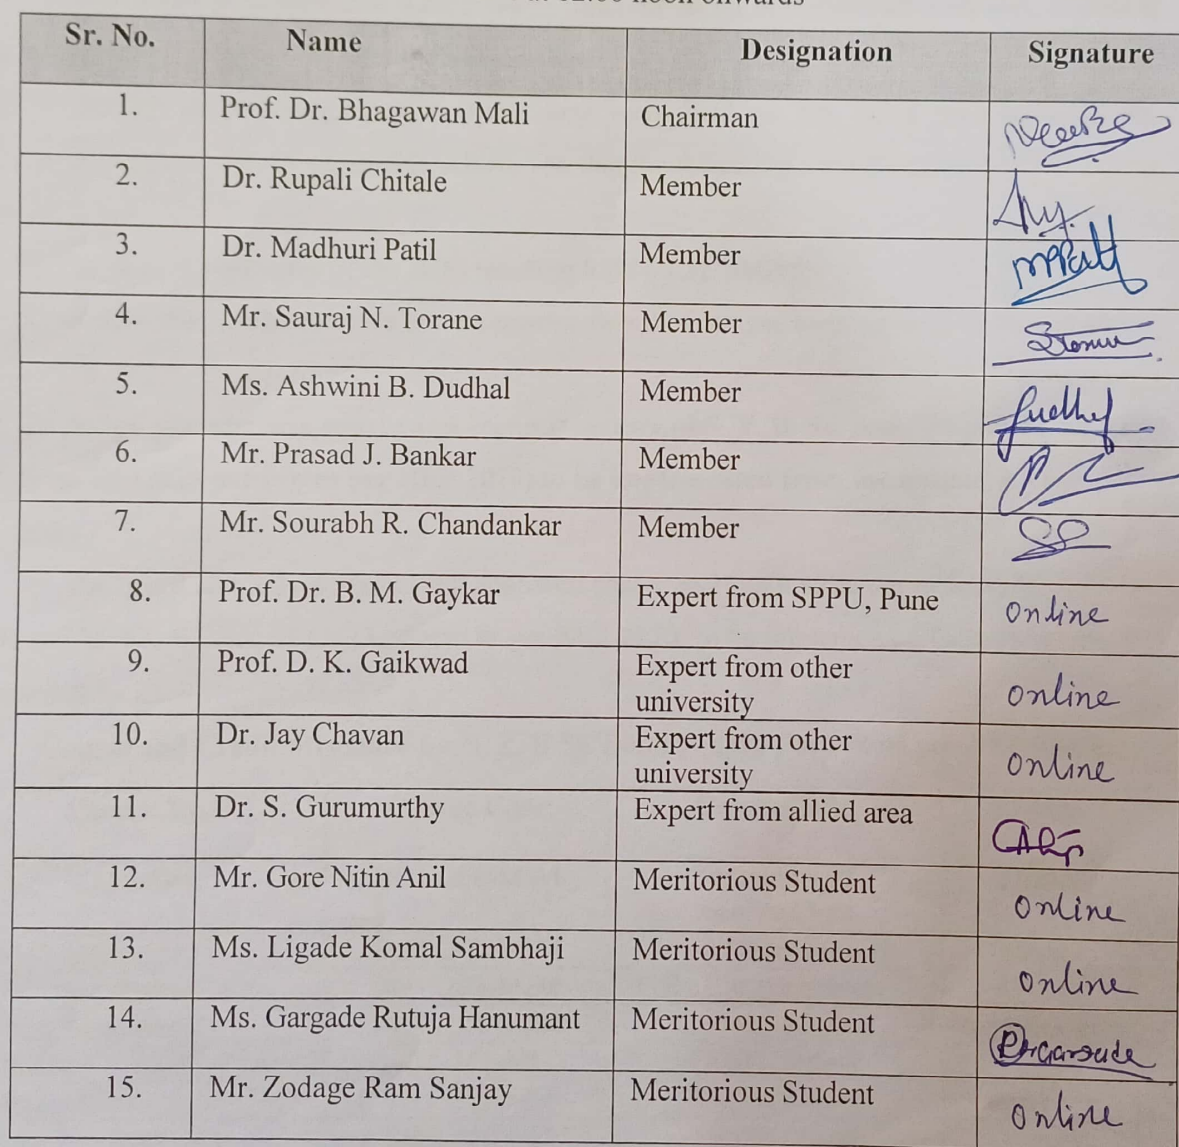 noon onwards
Sr. No. Name Designation Signature
1. Prof. Dr. Bhagawan Mali Chairman
2. Dr. Rupali Chitale Member
3. Dr. Madhuri Patil Member
4. Mr. Sauraj N. Torane Member
5. Ms. Ashwini B. Dudhal Member
6. Mr. Prasad J. Bankar Member
7. Mr. Sourabh R. Chandankar Member
8. Prof. Dr. B. M. Gaykar Expert from SPPU, Pune online
9. Prof. D. K. Gaikwad Expert from other
university online
10. Dr. Jay Chavan Expert from other
university online
11. Dr. S. Gurumurthy Expert from allied area
12. Mr. Gore Nitin Anil Meritorious Student online
13. Ms. Ligade Komal Sambhaji Meritorious Student online
14. Ms. Gargade Rutuja Hanumant Meritorious Student
15. Mr. Zodage Ram Sanjay Meritorious Student online